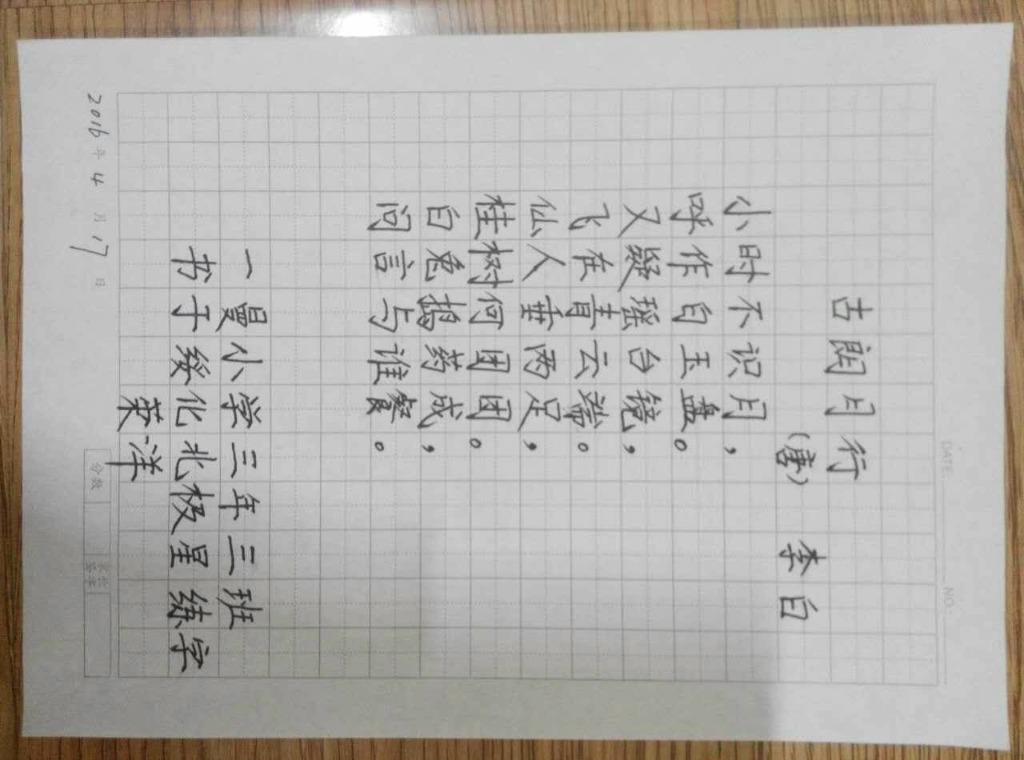 DATE
NO.
古朗月行
(唐) 李白
小时不识月，
呼作白玉盘。
又疑瑶台镜，
飞在青云端。
仙人垂两足，
桂树何团团。
白兔捣药成，
问言与谁餐。
一曼小学三年三班
书于绥化北极星练字
洋
2016年4月17日
分数